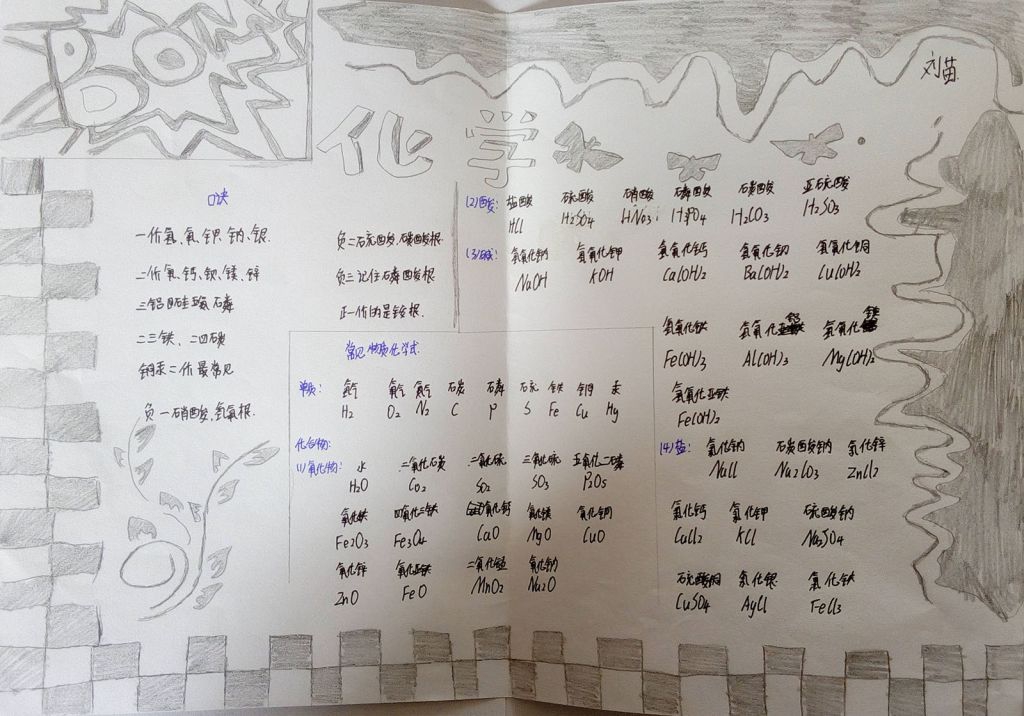 BOM
刘苗
化学
口诀
一价氢、氯、钾、钠、银、
二价氧、钙、钡、镁、锌
三铝四硅五氮磷
二三铁、二四碳
铜汞二价最常见
负一硝酸、氢氧根.
负二硫酸、碳酸根.
负三记住磷酸根
正一价的是铵根.
常见物质化学式.
单质: 氢气 氧气 氮气 碳 磷 硫 铁 铜 汞
H₂ O₂ N₂ C P S Fe Cu Hg
化合物:
(1)氧化物: 水 二氧化碳 二氧化硫 三氧化硫 五氧化二磷
H₂O CO₂ SO₂ SO₃ P₂O₅
氧化铁 四氧化三铁 氧化钙 氧化镁 氧化铜
Fe₂O₃ Fe₃O₄ CaO MgO CuO
氧化锌 氧化亚铁 二氧化锰 氧化钠
ZnO FeO MnO₂ Na₂O
(2)酸: 盐酸 硫酸 硝酸 磷酸 碳酸 亚硫酸
HCl H₂SO₄ HNO₃ H₃PO₄ H₂CO₃ H₂SO₃
(3)碱: 氢氧化钠 氢氧化钾 氢氧化钙 氢氧化钡 氢氧化铜
NaOH KOH Ca(OH)₂ Ba(OH)₂ Cu(OH)₂
氢氧化铁 氢氧化铝 氢氧化镁
Fe(OH)₃ Al(OH)₃ Mg(OH)₂
氢氧化亚铁
Fe(OH)₂
(4)盐: 氯化钠 碳酸钠 氯化锌
NaCl Na₂CO₃ ZnCl₂
氯化钙 氯化钾 硫酸钠
CaCl₂ KCl Na₂SO₄
硫酸铜 氯化银 氯化铁
CuSO₄ AgCl FeCl₃